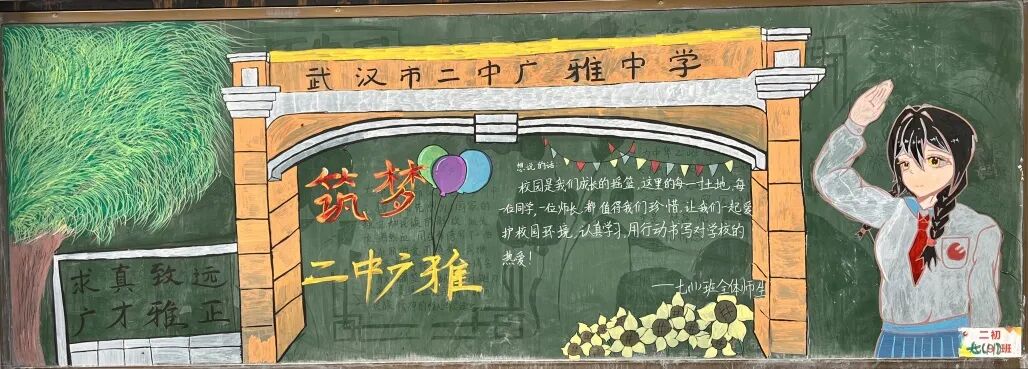 武汉市二中广雅中学
筑梦
二中广雅
想说的话:
校园是我们成长的摇篮,这里的每一寸土地,每
一位同学,一位师长,都值得我们珍惜。让我们一起爱
护校园环境,认真学习,用行动书写对学校的
热爱!
全体师生
求真致远
广才雅正
二初
班